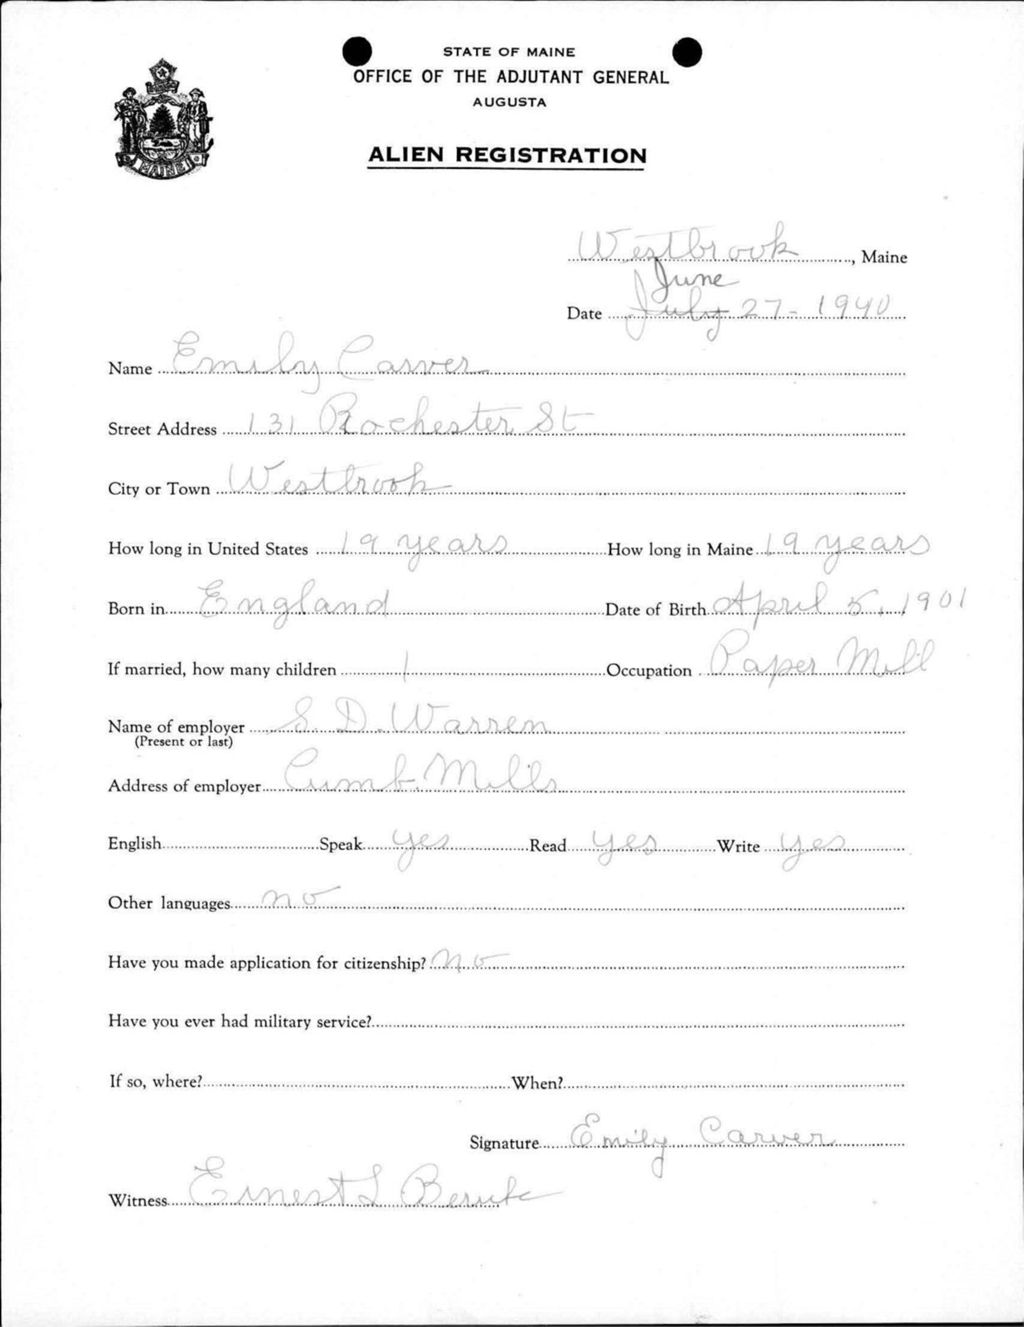 STATE OF MAINE
OFFICE OF THE ADJUTANT GENERAL
AUGUSTA
ALIEN REGISTRATION
MAINE
Westbrook, Maine
June
Date July 27-1940
Name Emily Carver
Street Address 131 Rochester St
City or Town Westbrook
How long in United States 19 years How long in Maine 19 years
Born in England Date of Birth April 5, 1901
If married, how many children 1 Occupation Paper Mill
Name of employer S. D. Warren
(Present or last)
Address of employer Cumb. Mills
English Speak yes Read yes Write yes
Other languages no
Have you made application for citizenship? no
Have you ever had military service?
If so, where? When?
Signature Emily Carver
Witness Ernest L